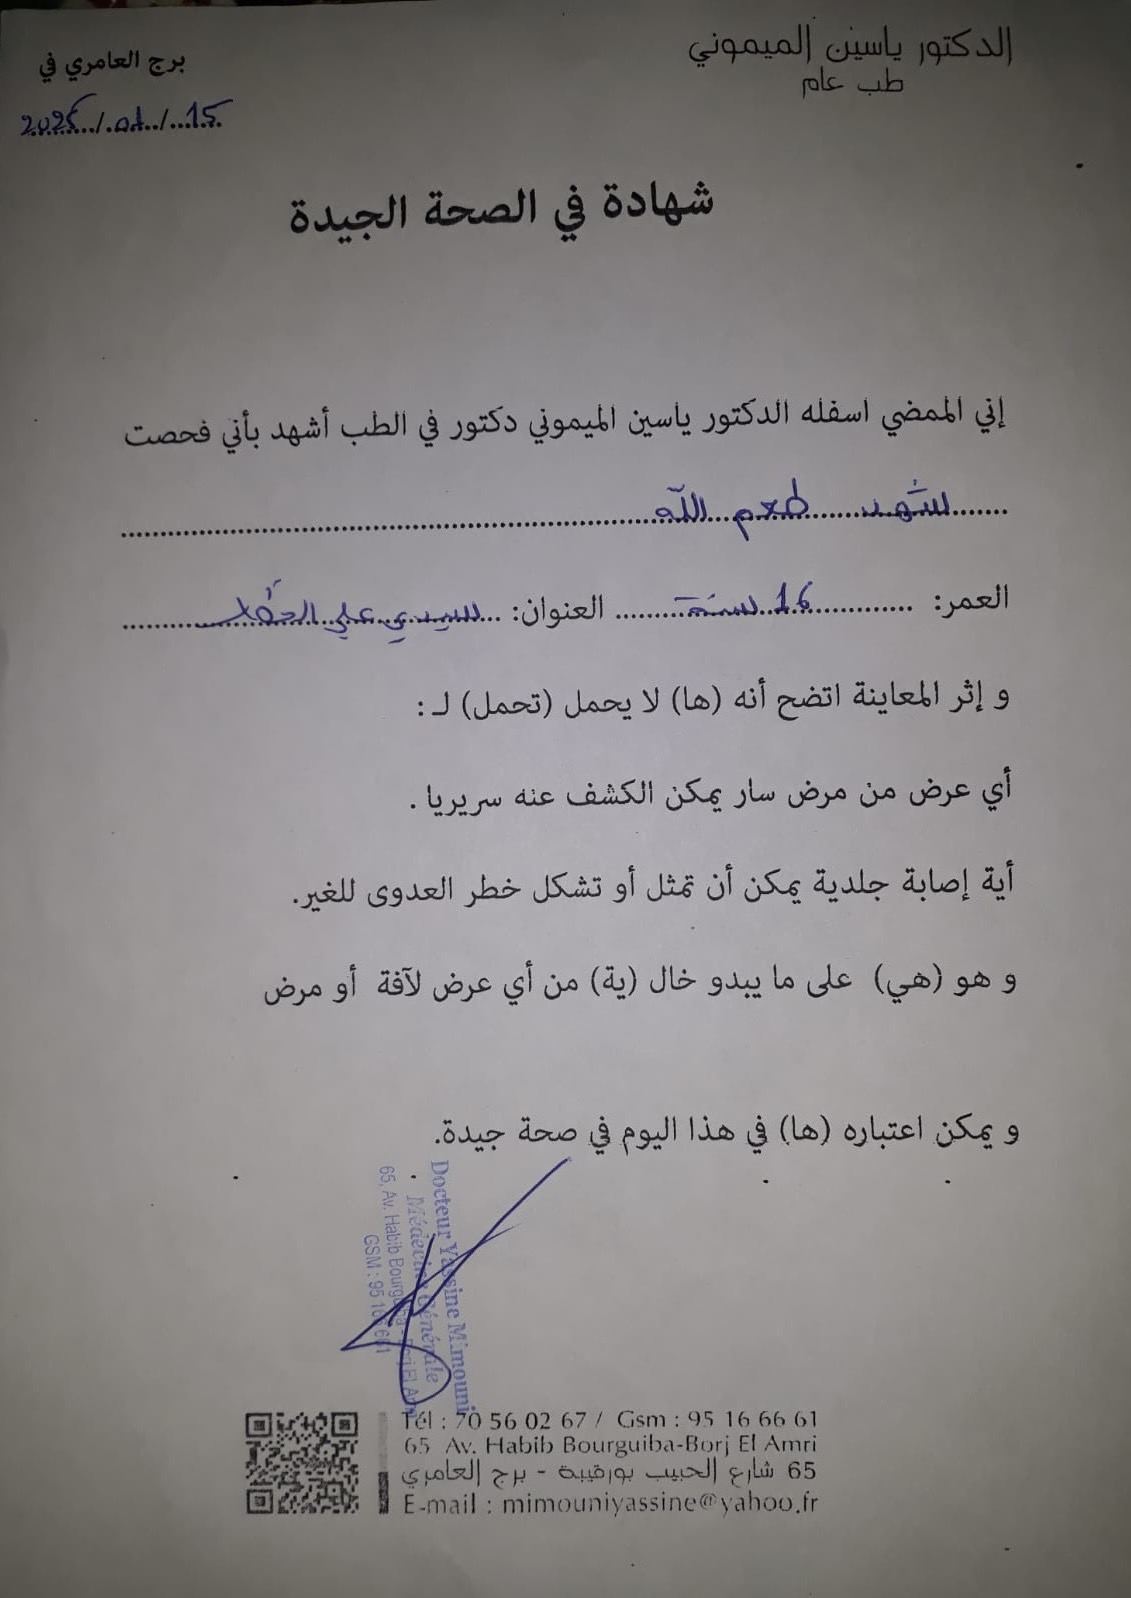 الدكتور ياسين الميموني
طب عام
برج العامري في
15/01/2025
شهادة في الصحة الجيدة
إني الممضي اسفله الدكتور ياسين الميموني دكتور في الطب أشهد بأني فحصت
شهد طعم الله
العمر: 16 سنة العنوان: سيدي علي
و إثر المعاينة اتضح أنه (ها) لا يحمل (تحمل) لـ :
أي عرض من مرض سار يمكن الكشف عنه سريريا .
أية إصابة جلدية يمكن أن تمثل أو تشكل خطر العدوى للغير.
و هو (هي) على ما يبدو خال (ية) من أي عرض لآفة أو مرض
و يمكن اعتباره (ها) في هذا اليوم في صحة جيدة.
Docteur Yassine Mimouni
Médecine Générale
65, Av. Habib Bourguiba - Borj El Amri
GSM : 95 166 661
Tél : 70 56 02 67 / Gsm : 95 16 66 61
65 Av. Habib Bourguiba-Borj El Amri
65 شارع الحبيب بورقيبة - برج العامري
E-mail : mimouniyassine@yahoo.fr